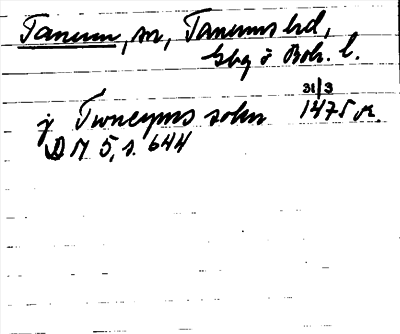 Tanum, sn, Tanums hd,
Gbg o Boh. l.
31/3
j Twneyms sokn 1475 or.
DN 5, s. 644